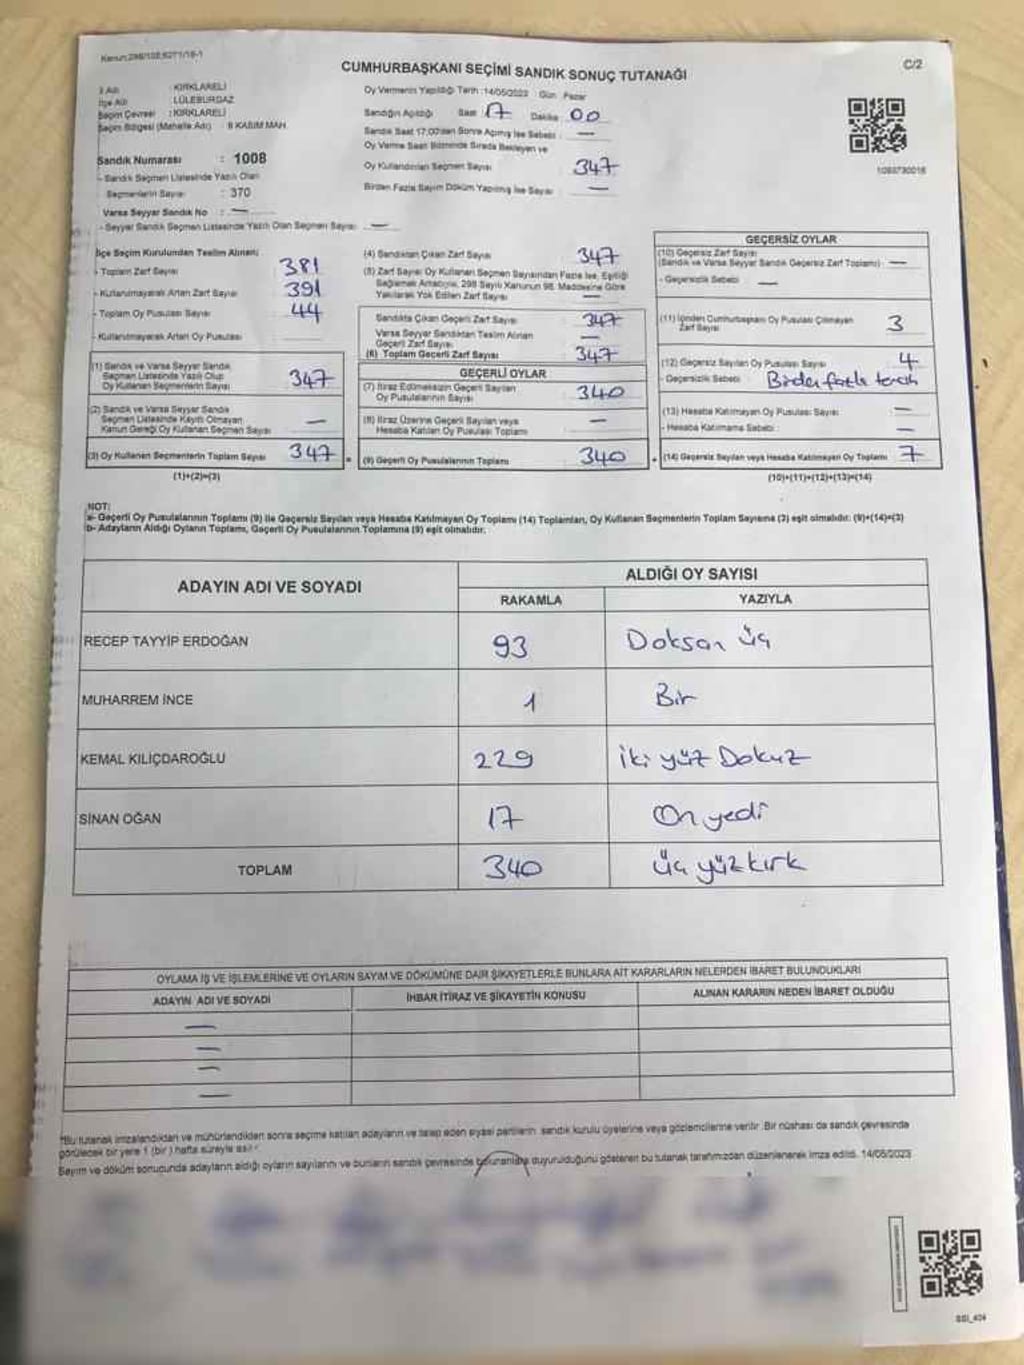 Kanun:298/105,6271/18-1
C/2
CUMHURBAŞKANI SEÇİMİ SANDIK SONUÇ TUTANAĞI
İl Adı : KIRKLARELİ
İlçe Adı : LÜLEBURGAZ
Seçim Çevresi : KIRKLARELİ
Seçim Bölgesi (Mahalle Adı) : 8 KASIM MAH.
Sandık Numarası : 1008
- Sandık Seçmen Listesinde Yazılı Olan
Seçmenlerin Sayısı : 370
Varsa Seyyar Sandık No : —
- Seyyar Sandık Seçmen Listesinde Yazılı Olan Seçmen Sayısı : —
Oy Vermenin Yapıldığı Tarih :14/05/2023 Gün : Pazar
Sandığın Açıldığı Saat : 17 Dakika : 00
Sandık Saat 17:00'den Sonra Açılmış İse Sebebi : —
Oy Verme Saati Bitiminde Sırada Bekleyen ve
Oy Kullandırılan Seçmen Sayısı : 347
Birden Fazla Sayım Döküm Yapılmış İse Sayısı : —
1093730016
İlçe Seçim Kurulundan Teslim Alınan;
- Toplam Zarf Sayısı 381
- Kullanılmayarak Artan Zarf Sayısı 391
- Toplam Oy Pusulası Sayısı 44
- Kullanılmayarak Artan Oy Pusulası
(1) Sandık ve Varsa Seyyar Sandık
Seçmen Listesinde Yazılı Olup
Oy Kullanan Seçmenlerin Sayısı 347
(2) Sandık ve Varsa Seyyar Sandık
Seçmen Listesinde Kayıtlı Olmayan
Kanun Gereği Oy Kullanan Seçmen Sayısı —
(3) Oy Kullanan Seçmenlerin Toplam Sayısı 347 =
(1)+(2)=(3)
(4) Sandıktan Çıkan Zarf Sayısı 347
(5) Zarf Sayısı Oy Kullanan Seçmen Sayısından Fazla İse, Eşitliği
Sağlamak Amacıyla, 298 Sayılı Kanunun 98. Maddesine Göre
Yakılarak Yok Edilen Zarf Sayısı —
Sandıkta Çıkan Geçerli Zarf Sayısı 347
Varsa Seyyar Sandıktan Teslim Alınan
Geçerli Zarf Sayısı —
(6) Toplam Geçerli Zarf Sayısı 347
GEÇERLİ OYLAR
(7) İtiraz Edilmeksizin Geçerli Sayılan
Oy Pusulalarının Sayısı 340
(8) İtiraz Üzerine Geçerli Sayılan veya
Hesaba Katılan Oy Pusulası Toplamı —
(9) Geçerli Oy Pusulalarının Toplamı 340 +
GEÇERSİZ OYLAR
(10) Geçersiz Zarf Sayısı
(Sandık ve Varsa Seyyar Sandık Geçersiz Zarf Toplamı) : —
- Geçersizlik Sebebi : —
(11) İçinden Cumhurbaşkanı Oy Pusulası Çıkmayan
Zarf Sayısı 3
(12) Geçersiz Sayılan Oy Pusulası Sayısı 4
- Geçersizlik Sebebi : Birden fazla tercih
(13) Hesaba Katılmayan Oy Pusulası Sayısı —
- Hesaba Katılmama Sebebi : —
(14) Geçersiz Sayılan veya Hesaba Katılmayan Oy Toplamı 7
(10)+(11)+(12)+(13)=(14)
NOT:
a- Geçerli Oy Pusulalarının Toplamı (9) ile Geçersiz Sayılan veya Hesaba Katılmayan Oy Toplamı (14) Toplamları, Oy Kullanan Seçmenlerin Toplam Sayısına (3) eşit olmalıdır. (9)+(14)=(3)
b- Adayların Aldığı Oyların Toplamı, Geçerli Oy Pusulalarının Toplamına (9) eşit olmalıdır.
ADAYIN ADI VE SOYADI
ALDIĞI OY SAYISI
RAKAMLA YAZIYLA
RECEP TAYYİP ERDOĞAN 93 Doksan üç
MUHARREM İNCE 1 Bir
KEMAL KILIÇDAROĞLU 229 iki yüz Dokuz
SİNAN OĞAN 17 On yedi
TOPLAM 340 üç yüz kırk
OYLAMA İŞ VE İŞLEMLERİNE VE OYLARIN SAYIM VE DÖKÜMÜNE DAİR ŞİKAYETLERLE BUNLARA AİT KARARLARIN NELERDEN İBARET BULUNDUKLARI
ADAYIN ADI VE SOYADI İHBAR İTİRAZ VE ŞİKAYETİN KONUSU ALINAN KARARIN NEDEN İBARET OLDUĞU
—
—
—
—
*Bu tutanak imzalandıktan ve mühürlendikten sonra seçime katılan adayların ve talep eden siyasi partilerin sandık kurulu üyelerine veya gözlemcilerine verilir. Bir nüshası da sandık çevresinde
görülecek bir yere 1 (bir) hafta süreyle asılır.
Sayım ve döküm sonucunda adayların aldığı oyların sayılarını ve bunların sandık çevresinde bulunanlara duyurulduğunu gösteren bu tutanak tarafımızdan düzenlenerek imza edildi. 14/05/2023
SSI_404